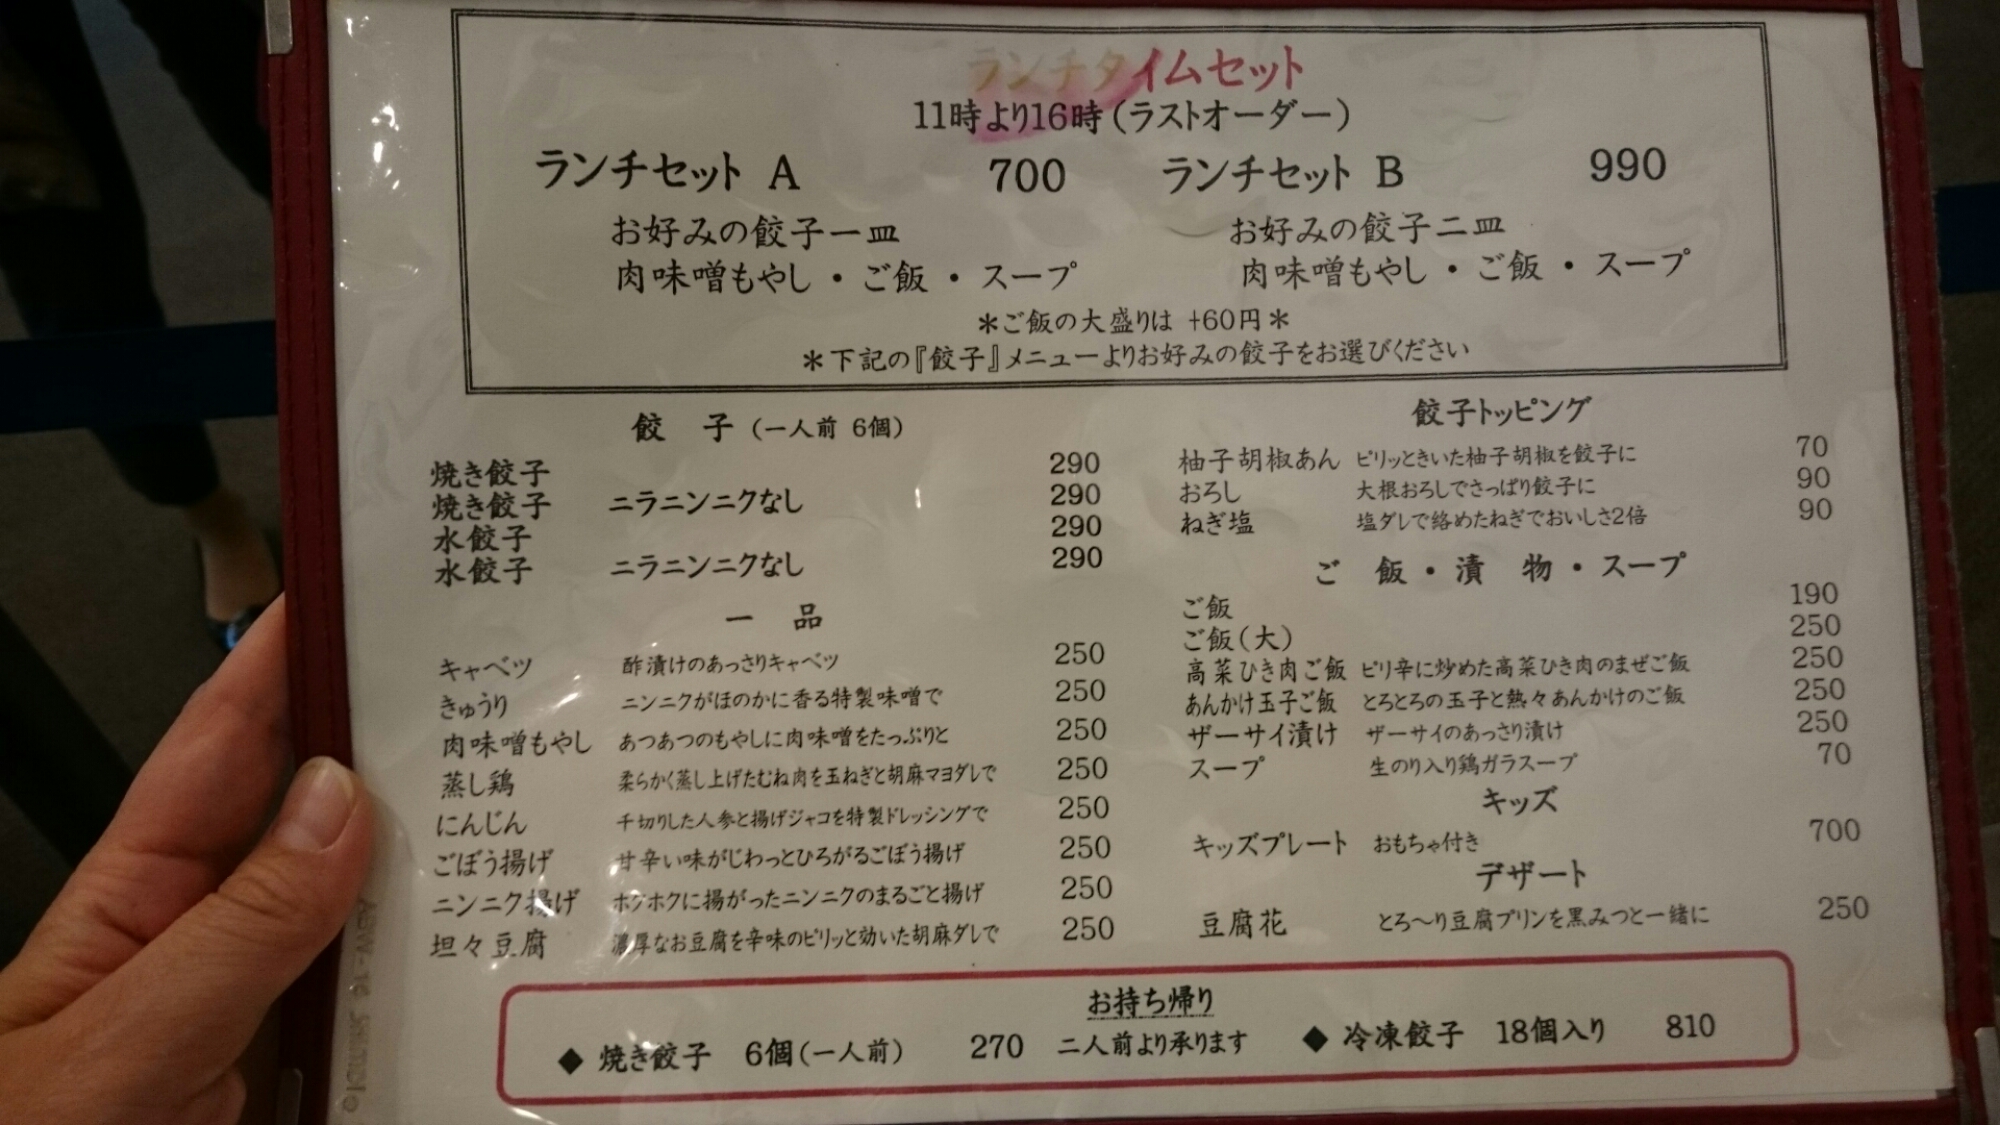 ランチタイムセット
11時より16時（ラストオーダー）
ランチセット A 700
お好みの餃子一皿
肉味噌もやし・ご飯・スープ
ランチセット B 990
お好みの餃子二皿
肉味噌もやし・ご飯・スープ
＊ご飯の大盛りは +60円＊
＊下記の『餃子』メニューよりお好みの餃子をお選びください
餃 子（一人前 6個）
焼き餃子 290
焼き餃子 ニラニンニクなし 290
水餃子 290
水餃子 ニラニンニクなし 290
一 品
キャベツ 酢漬けのあっさりキャベツ 250
きゅうり ニンニクがほのかに香る特製味噌で 250
肉味噌もやし あつあつのもやしに肉味噌をたっぷりと 250
蒸し鶏 柔らかく蒸し上げたむね肉を玉ねぎと胡麻マヨダレで 250
にんじん 千切りした人参と揚げジャコを特製ドレッシングで 250
ごぼう揚げ 甘辛い味がじわっとひろがるごぼう揚げ 250
ニンニク揚げ ホクホクに揚がったニンニクのまるごと揚げ 250
坦々豆腐 濃厚なお豆腐を辛味のピリッと効いた胡麻ダレで 250
餃子トッピング
柚子胡椒あん ピリッときいた柚子胡椒を餃子に 70
おろし 大根おろしでさっぱり餃子に 90
ねぎ塩 塩ダレで絡めたねぎでおいしさ2倍 90
ご 飯・漬 物・スープ
ご飯 190
ご飯（大） 250
高菜ひき肉ご飯 ピリ辛に炒めた高菜ひき肉のまぜご飯 250
あんかけ玉子ご飯 とろとろの玉子と熱々あんかけのご飯 250
ザーサイ漬け ザーサイのあっさり漬け 250
スープ 生のり入り鶏ガラスープ 70
キッズ
キッズプレート おもちゃ付き 700
デザート
豆腐花 とろ〜り豆腐プリンを黒みつと一緒に 250
お持ち帰り
◆ 焼き餃子 6個（一人前） 270 二人前より承ります ◆ 冷凍餃子 18個入り 810